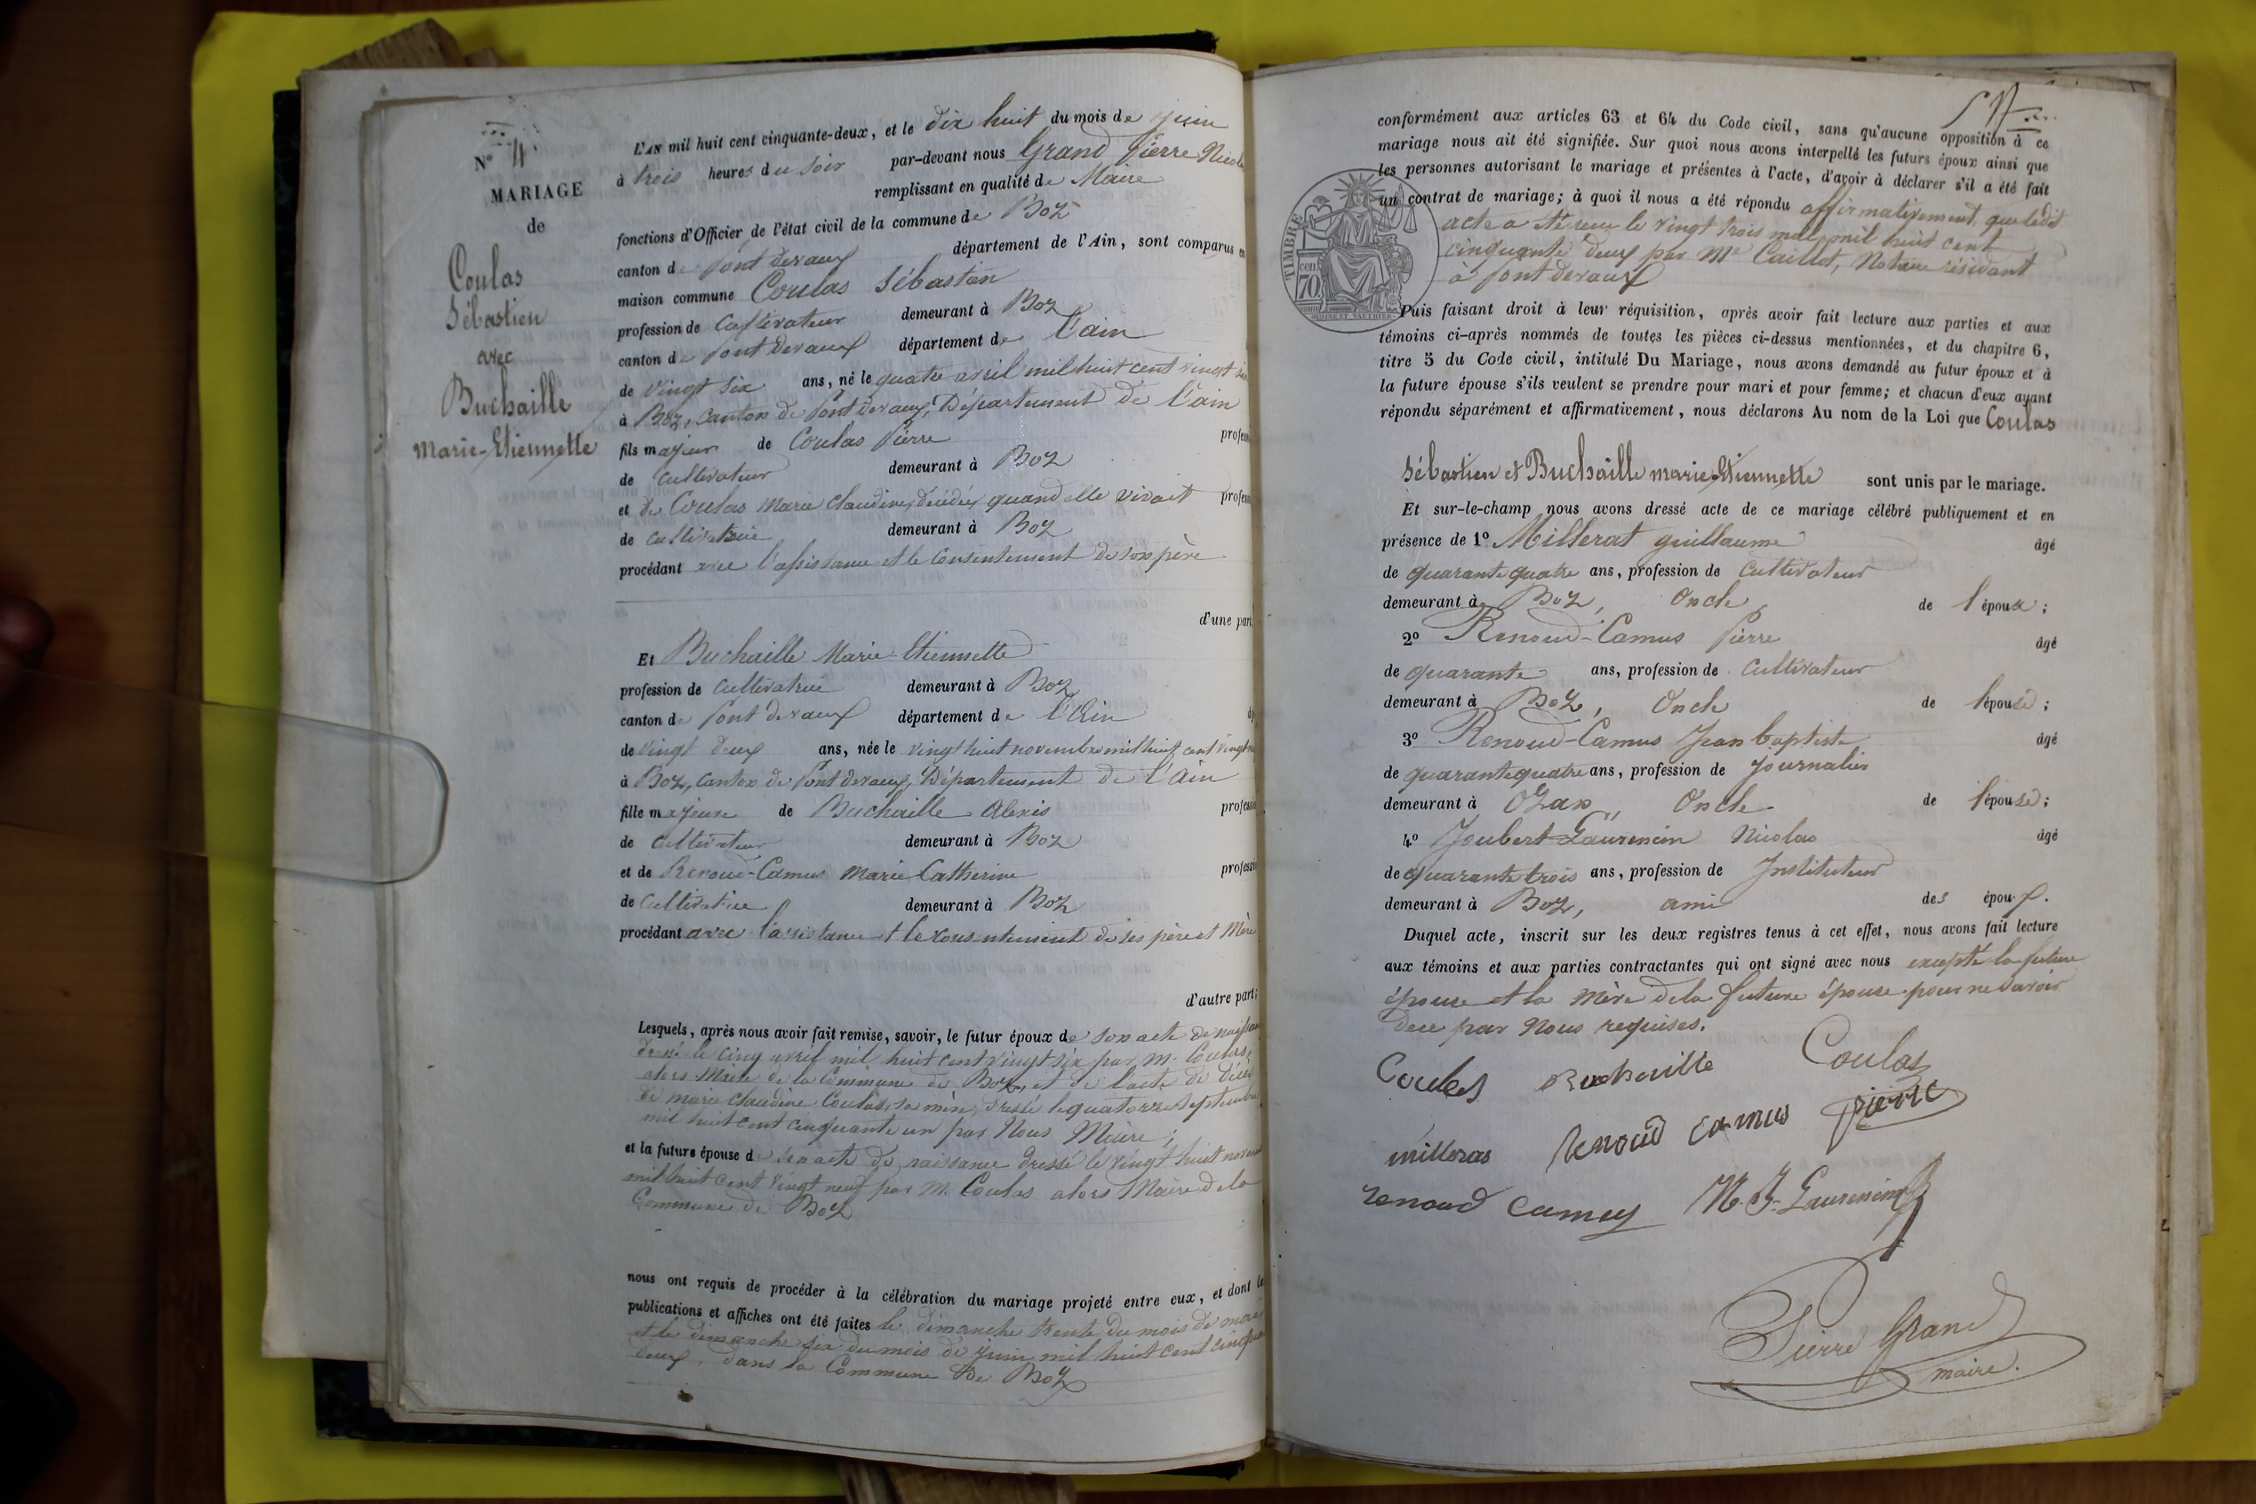 N° 4.
MARIAGE
de
Coulas
Sébastien
avec
Buchaille
Marie-Etiennette
L'AN mil huit cent cinquante-deux, et le dix huit du mois de juin
à trois heures du soir par-devant nous Grand Pierre Nicolas
remplissant en qualité de Maire
fonctions d'Officier de l'état civil de la commune de Boz
canton de Pont devaux département de l'Ain, sont comparus en
maison commune Coulas Sébastien
profession de Cultivateur demeurant à Boz
canton de Pont devaux département de l'ain
de vingt six ans, né le quatre avril mil huit cent vingt six
à Boz, canton de Pont devaux, Département de l'ain
fils majeur de Coulas Pierre profess
de cultivateur demeurant à Boz
et de Coulas Marie Claudine, décédée, quand elle vivait profess
de cultivatrice demeurant à Boz
procédant avec l'assistance et le consentement de son père
d'une part
Et Buchaille Marie-Etiennette
profession de cultivatrice demeurant à Boz
canton de Pont devaux département de l'Ain
de vingt deux ans, née le vingt huit novembre mil huit cent vingt
à Boz, canton de Pont devaux, Département de l'Ain
fille majeure de Buchaille Alexis profess
de cultivateur demeurant à Boz
et de Renoud-Camus Marie Catherine profess
de cultivatrice demeurant à Boz
procédant avec l'assistance et le consentement de ses père et Mère
d'autre part;
Lesquels, après nous avoir fait remise, savoir, le futur époux de son acte de naissance
dressé le cinq avril mil huit cent vingt six par M. Coulas,
alors Maire de la Commune de Boz, et de l'acte de décès
de marie Claudine Coulas, sa mère, dressé le quatorze septembre
mil huit cent cinquante un par Nous Maire;
et la future épouse de son acte de naissance dressé le vingt huit novem
mil huit cent vingt neuf par M. Coulas alors Maire de la
Commune de Boz
nous ont requis de procéder à la célébration du mariage projeté entre eux, et dont les
publications et affiches ont été faites le dimanche trente du mois de mai
et le dimanche six du mois de juin mil huit cent cinquante
deux, dans la Commune de Boz
conformément aux articles 63 et 64 du Code civil, sans qu'aucune opposition à ce
mariage nous ait été signifiée. Sur quoi nous avons interpellé les futurs époux ainsi que
les personnes autorisant le mariage et présentes à l'acte, d'avoir à déclarer s'il a été fait
un contrat de mariage; à quoi il nous a été répondu affirmativement, que ledit
acte a été reçu le vingt trois mai mil huit cent
cinquante deux par Me Caillet, Notaire résidant
à pont devaux
TIMBRE
70
Puis faisant droit à leur réquisition, après avoir fait lecture aux parties et aux
témoins ci-après nommés de toutes les pièces ci-dessus mentionnées, et du chapitre 6,
titre 5 du Code civil, intitulé Du Mariage, nous avons demandé au futur époux et à
la future épouse s'ils veulent se prendre pour mari et pour femme; et chacun d'eux ayant
répondu séparément et affirmativement, nous déclarons Au nom de la Loi que Coulas
Sébastien et Buchaille marie-Etiennette sont unis par le mariage.
Et sur-le-champ nous avons dressé acte de ce mariage célébré publiquement et en
présence de 1° Millerat guillaume âgé
de quarante quatre ans, profession de cultivateur
demeurant à Boz, Oncle de l'époux;
2° Renoud-Camus Pierre âgé
de quarante ans, profession de cultivateur
demeurant à Boz, Oncle de l'épouse;
3° Renoud-Camus Jean baptiste âgé
de quarante quatre ans, profession de Journalier
demeurant à Ozan, Oncle de l'épouse;
4° Joubert-Laurencin Nicolas âgé
de quarante trois ans, profession de Instituteur
demeurant à Boz, ami des époux.
Duquel acte, inscrit sur les deux registres tenus à cet effet, nous avons fait lecture
aux témoins et aux parties contractantes qui ont signé avec nous excepté la future
épouse et la mère de la future épouse pour ne savoir
de ce par Nous requises.
Coulas Buchaille Coulas
pierre
milleras Renoud camus
renoud camus N. J. Laurencin
Pierre Grand
maire.